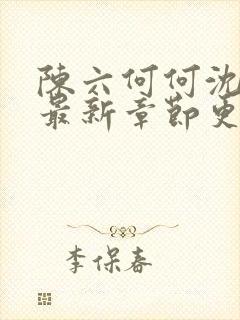 陈六何何沈
最新章节更
李保春